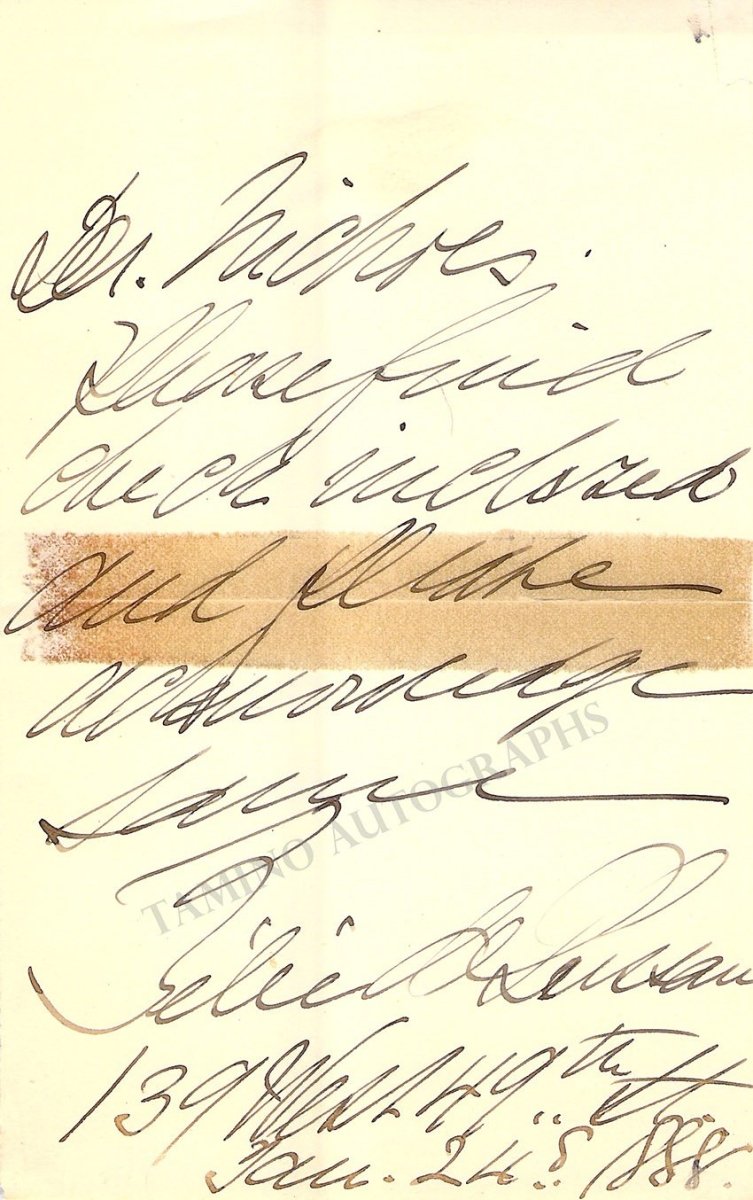 Dr. Nichols.
Please find
check inclosed
and please
acknowledge
same
Zélie de Lussan
139 West 49th St.
Jan. 24th 1888.
TAMINO AUTOGRAPHS